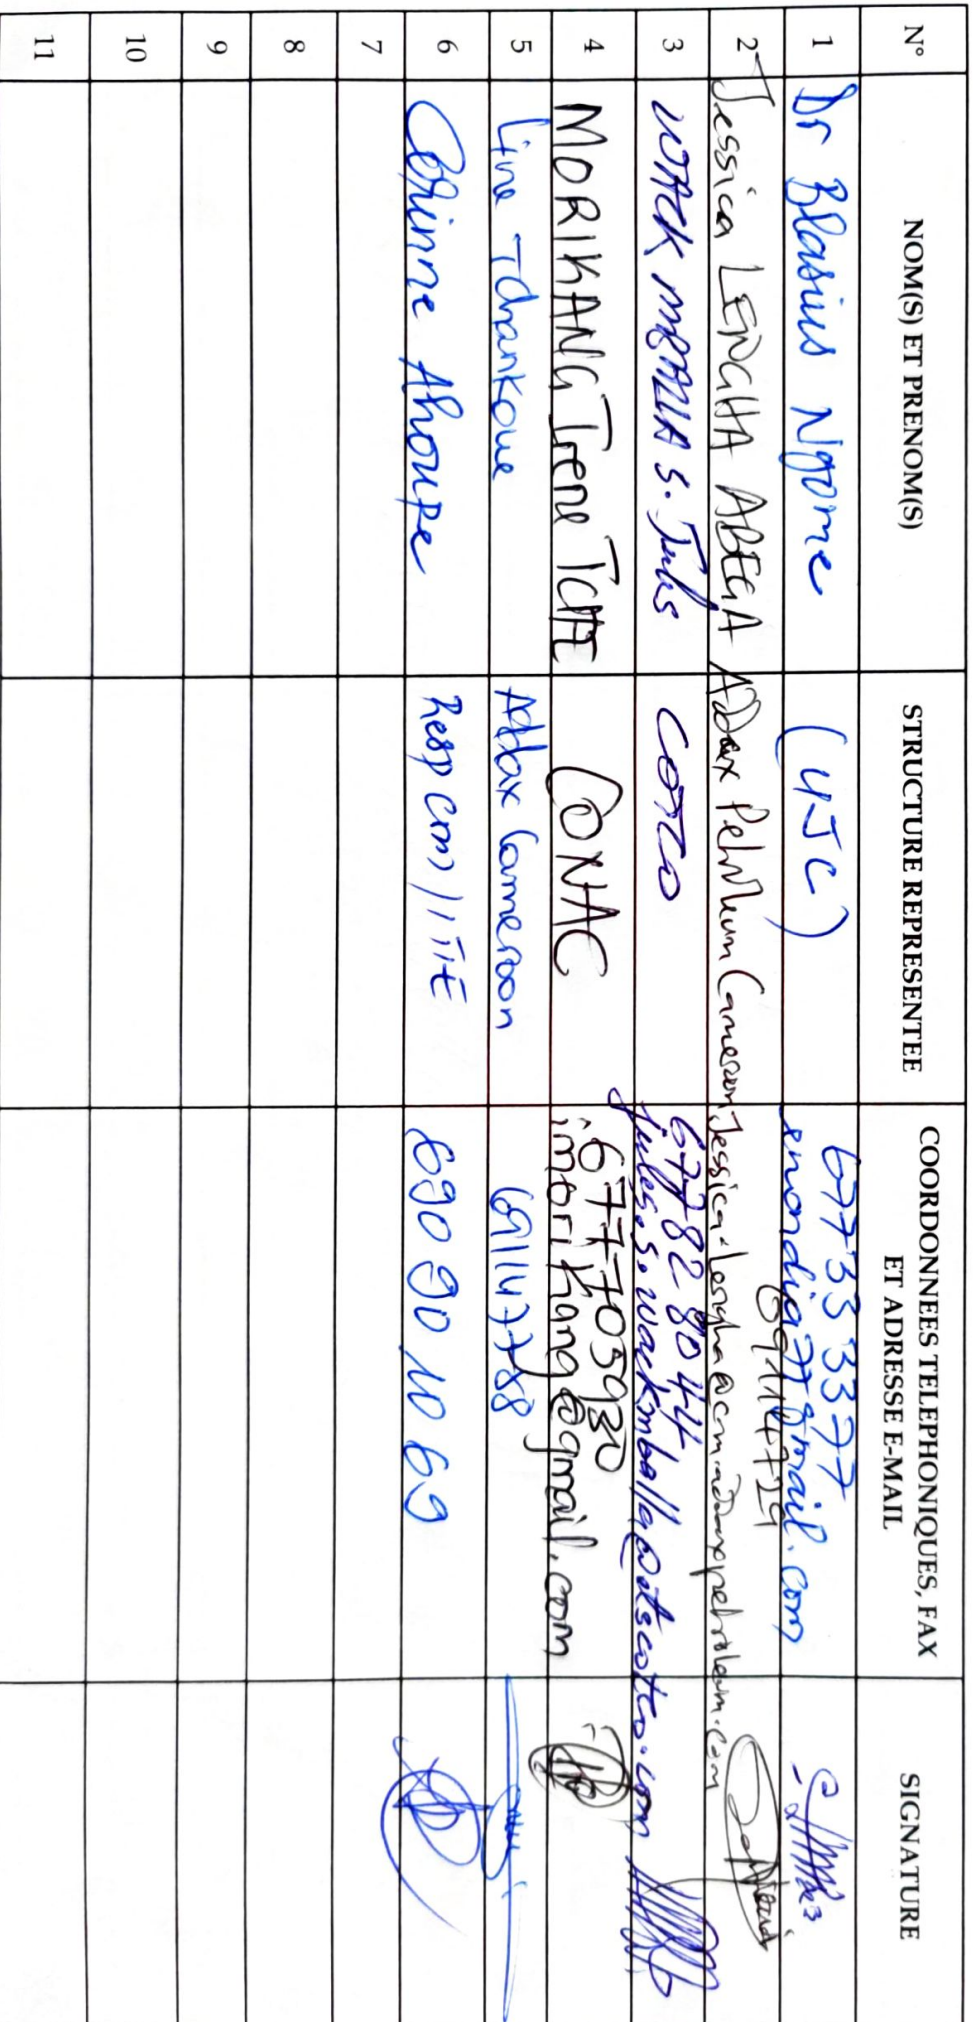 N° NOM(S) ET PRENOM(S) STRUCTURE REPRESENTEE COORDONNEES TELEPHONIQUES, FAX ET ADRESSE E-MAIL SIGNATURE
1 Dr Blasius Ngome (UJC) 677333377
2 Jessica LENGHA ABEGA Addax Petroleum Cameroon 691114729
jessica.lengha@cm.addaxpetroleum.com
3 WACK MBALLA S. Jules COTCO 677828044
jules.s.wackmballa@etscotco.com
4 MORIKANG Irene TCHE CONAC 6777703930
imorikang@gmail.com
5 Line Tchankoue Addax Cameroon 691147788
6 Corinne Ahoupe Resp com/ITIE 690901069
7
8
9
10
11